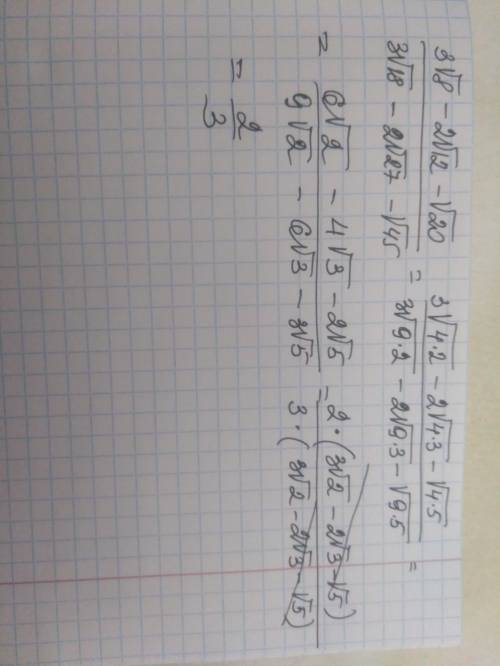 (3√8 − 2√12 − √20)/(3√18 − 2√27 − √45) = (3√4·2 − 2√4·3 − √4·5)/(3√9·2 − 2√9·3 − √9·5) =
= (6√2 − 4√3 − 2√5)/(9√2 − 6√3 − 3√5) = 2·(3√2 − 2√3 − √5)/3·(3√2 − 2√3 − √5)
= 2/3